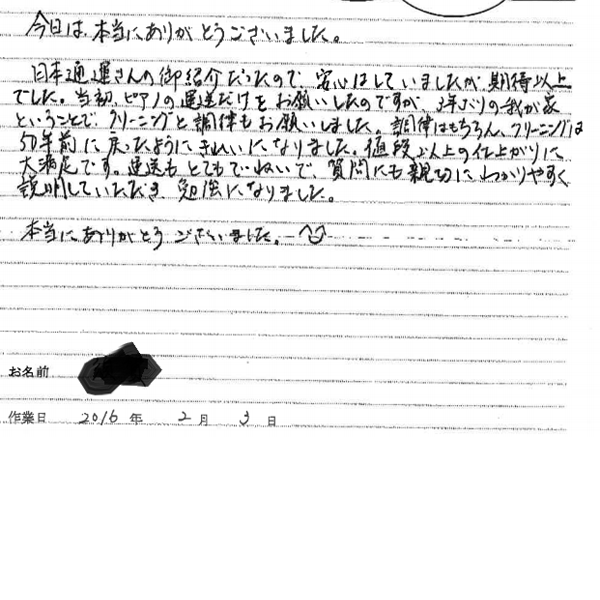 今日は、本当にありがとうございました。
日本通運さんの御紹介だったので、安心はしていましたが、期待以上
でした。当初、ピアノの運送だけをお願いしたのですが、3年ぶりの我が家
ということで、クリーニングと調律もお願いしました。調律はもちろん、クリーニングは
50年前に戻ったようにきれいになりました。値段以上の仕上がりに
大満足です。運送もとてもていねいで、質問にも親切にわかりやすく
説明していただき、勉強になりました。
本当にありがとうございました。
お名前
作業日 2016年 2月 3日